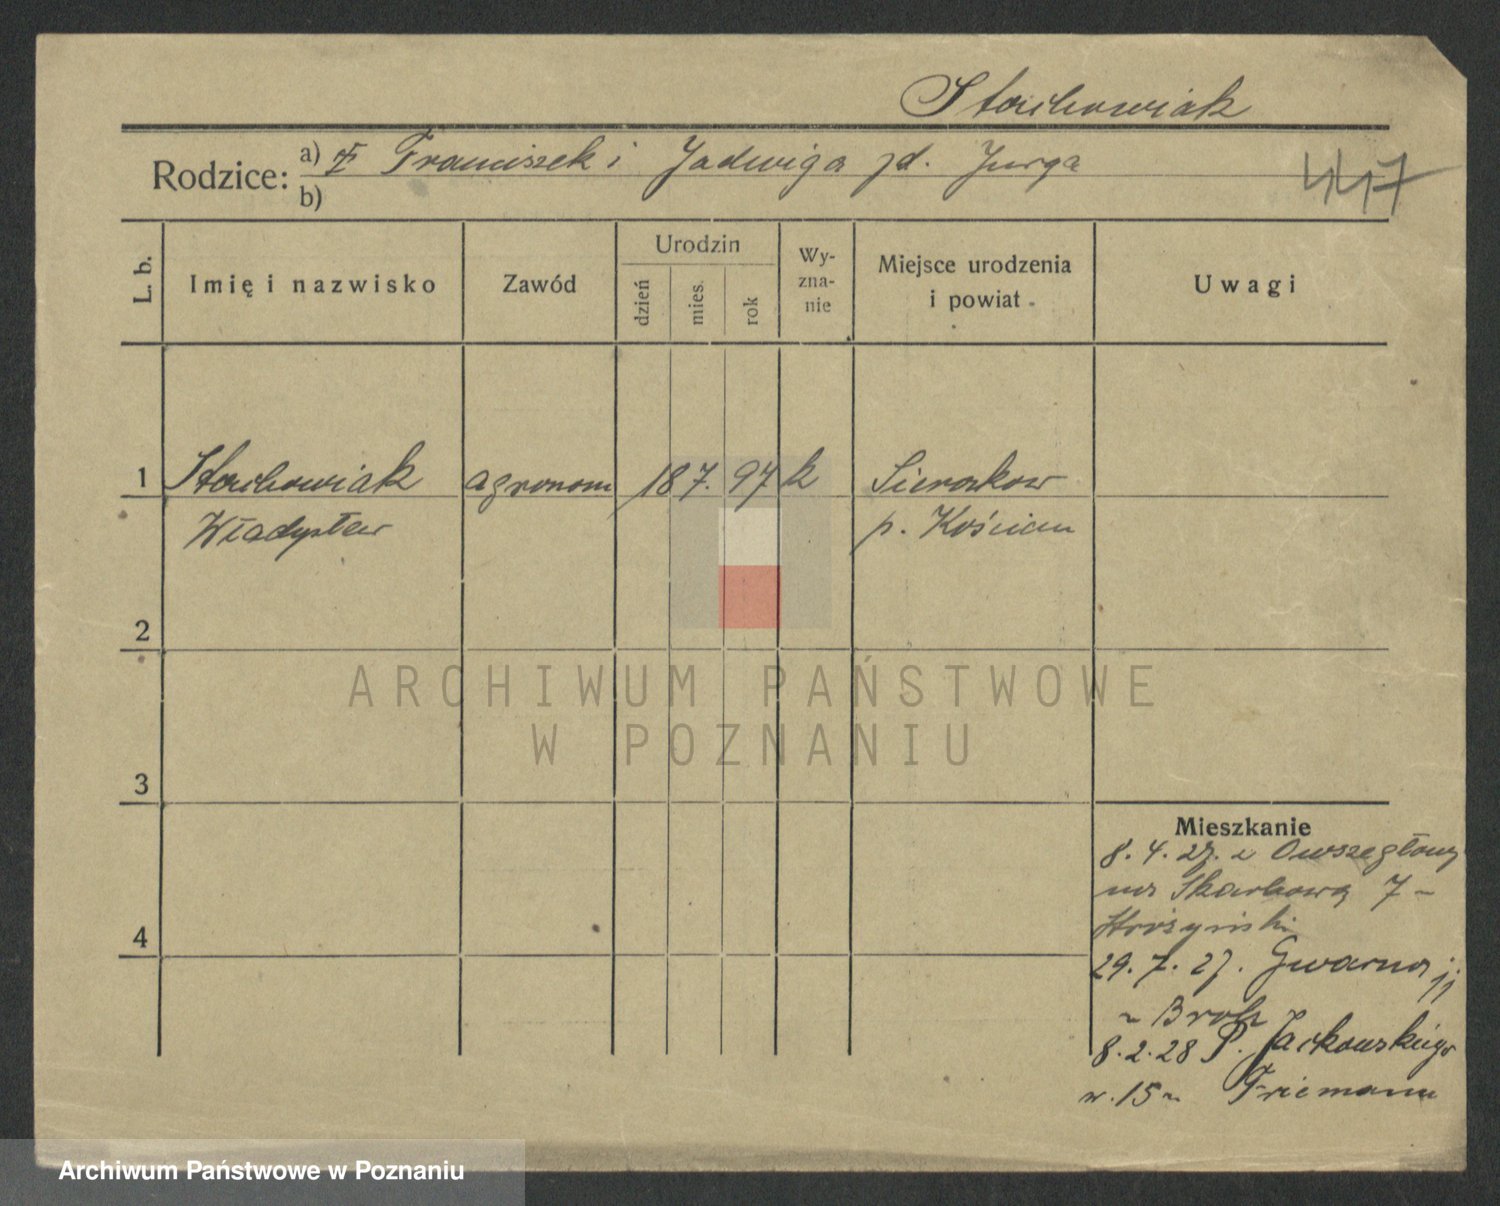 Stachowiak
Rodzice: a) Franciszek i Jadwiga zd. Jurga
b)
447
L. b.
Imię i nazwisko
Zawód
Urodzin
dzień
mies.
rok
Wy-
zna-
nie
Miejsce urodzenia
i powiat
Uwagi
1 Stachowiak agronom 18 7. 97 k Sierakow
Władysław p. Kościan
2
3
4
Mieszkanie
8. 4. 27. z
na Skarbową 7 -
29. 7. 27. Gwarna
8. 2. 28 P. Jackowskiego
15 Friemann
ARCHIWUM PAŃSTWOWE
W POZNANIU
Archiwum Państwowe w Poznaniu